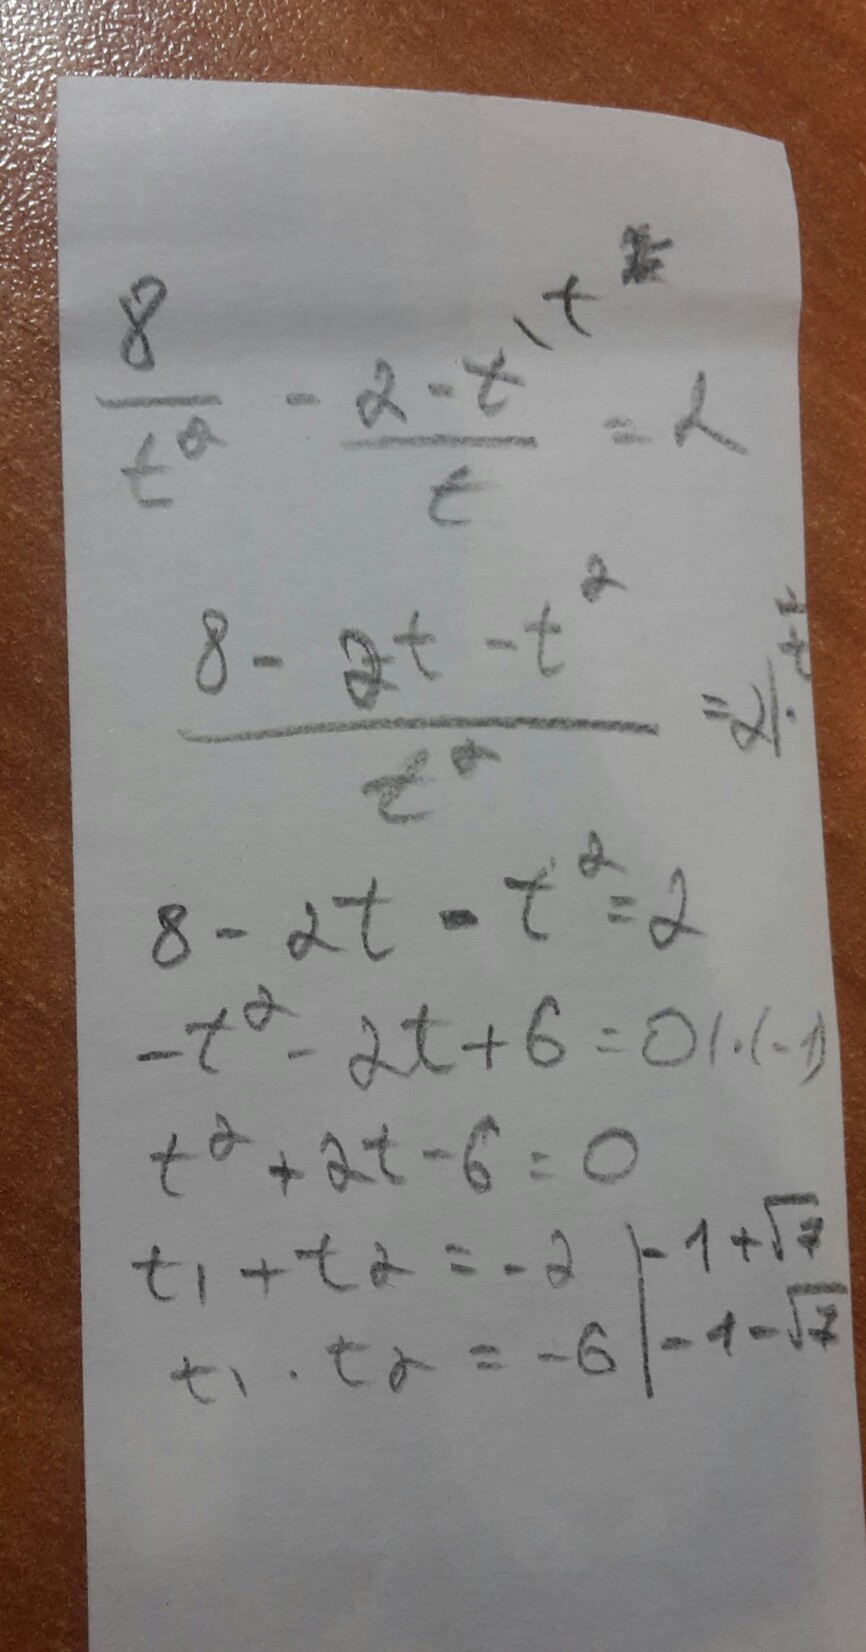 8/t² - (2-t)/t \t = 2
(8 - 2t - t²)/t² = 2 |·
8 - 2t - t² = 2
-t² - 2t + 6 = 0 |·(-1)
t² + 2t - 6 = 0
t₁ + t₂ = -2 | -1 + √7
t₁ · t₂ = -6 | -1 - √7